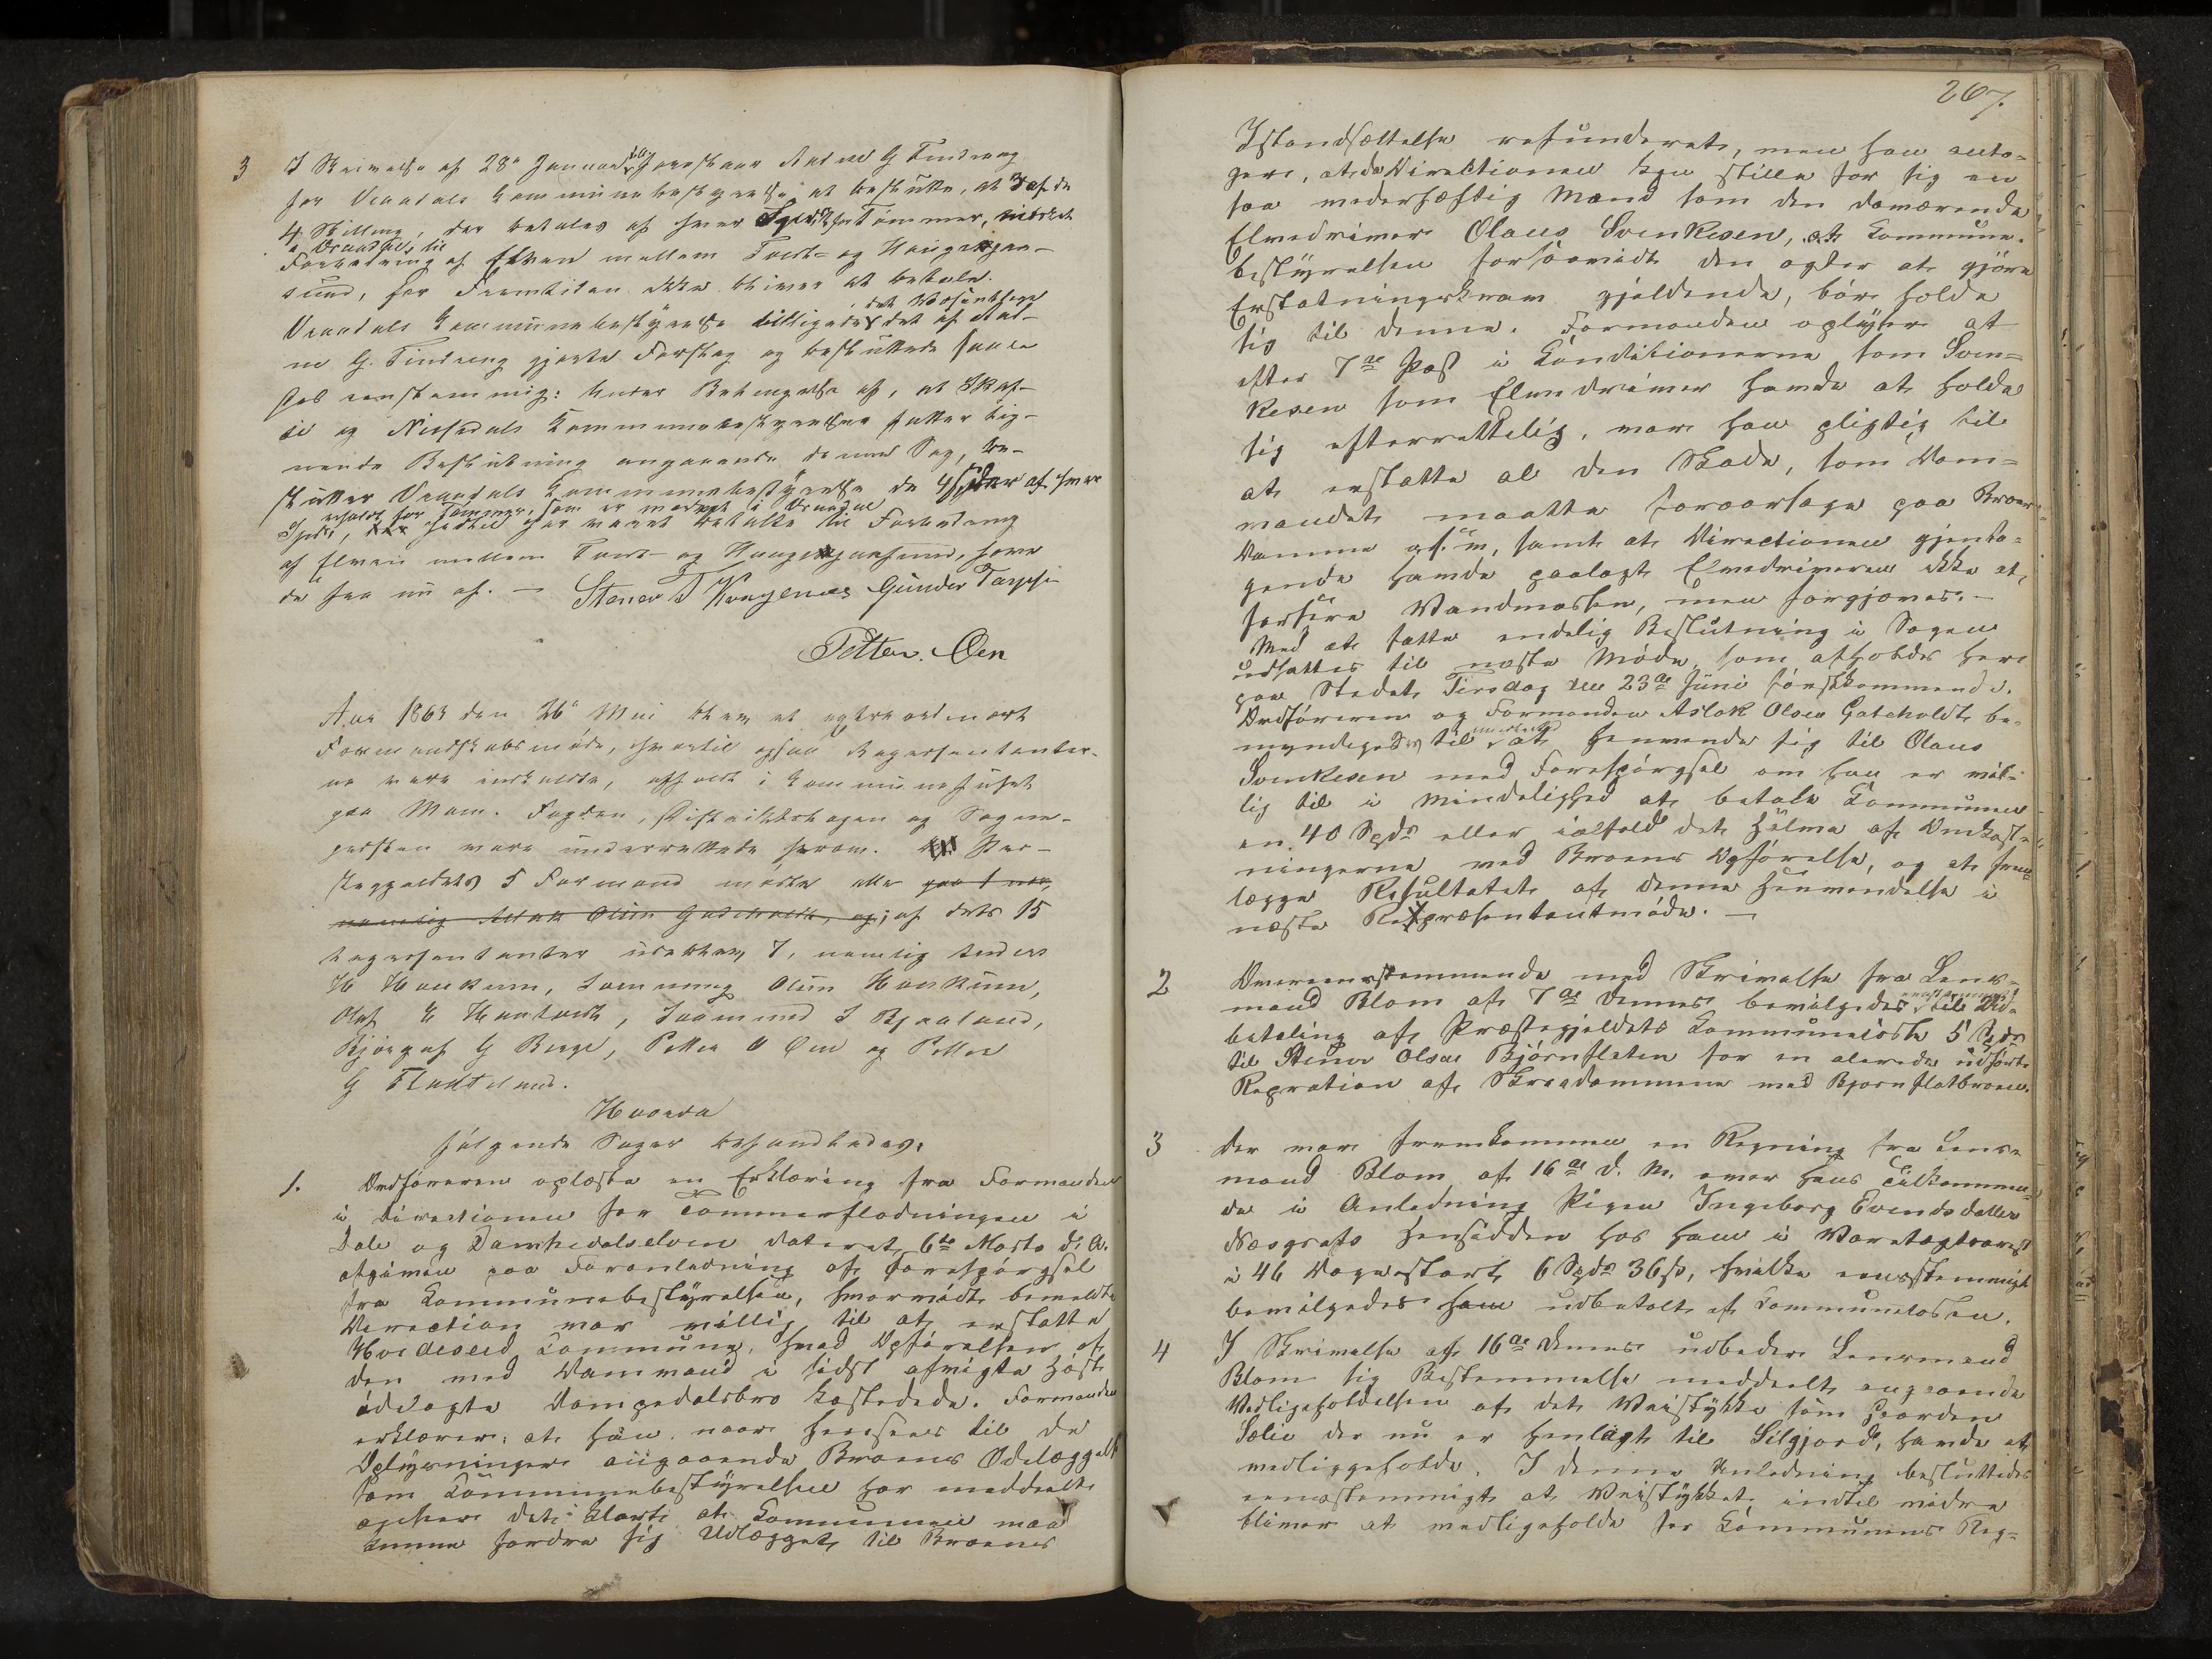 3 I Skrivelse af 28de Januar foreslaar Aadne G Tindreng
for Vraadals Kommunebestyrelse at beslutte, at 3 af de
4 Skilling, der betales af hver Speciesdaler Tømmer, mærket
i Vraadal, til
Forbedring af Elven mellem Tvedt- og Haugesjaa-
sund, for Fremtiden ikke bliver at betale.
det Væsentlige
Vraadals Kommunebestyrelse billigede det af Aad-
ne G. Tindreng gjorte Forslag og besluttede saale-
des eenstemmig: Under Betingelse af, at Skaf-
se og Nissedals Kommunebestyrelser fatter lig-
nende Beslutning angaaende denne Sag, be-
slutter Vraadals Kommunebestyrelse de 4 af hver
for Tømmer, som er mærket i Vraadal
Spd, hidtil har været betalte til Forbedring
af Elven mellem Tvedt- og sund, hæve
de fra nu af. — Stener T Kragenæs Gunder Tarjeisen
Petter. Øen
Aar 1863 den 26de Mai blev et extraordinært
Formandskabsmøde, hvortil ogsaa Repræsentanter-
ne vare indkaldte, afholdt i Kommunehuset
paa Moen. Fogden, Distriktslægen og Sogne-
præsten vare underrettede herom. Præ-
stegjeldets 5 Formænd mødte alle paa 1 nær,
nemlig Aslak Olsen Gateholdt, og; af dets 15
Repræsentanter udebleve 7, nemlig Anders
H Haukum, Olsen Haukum,
Olaf E , S Bjaaland,
Bjørguf G Berge, Petter O Øen og Petter
G .
Hvorda
følgende Sager behandledes:
1. Ordføreren oplæste en Erklæring fra Formanden
i Directionen for Tømmerflødningen i
Dale og Dansdedalselven dateret 6te Marts d. A.
afgiven paa Foranledning af Forespørgsel
fra Kommunebestyrelsen, hvorvidt bemeldte
Direction var villig til at erstatte
Hvideseid Kommune, hvad Opførelsen af
den ved Damvand i sidst afvigte Høst
ødelagte Damsedalsbro kostede. Formanden
erklærer: at han, naar hensees til de
Oplysninger angaaende Broens Ødelæggelse
som Kommunebestyrelsen har meddeelt,
anseer det klart at Kommunen maa
kunne fordre sig Udlægget til Broens
267.
Istandsættelse refunderet, men han anta-
ger, at da Directionen kan stille for sig en
saa vederhæftig Mand som den daværende
Elvedriver Olaus Svenkesen, at Kommune-
bestyrelsen forsaavidt den agter at gjøre
Erstatningskrav gjeldende, bør holde
sig til denne. Formanden oplyser at
efter 7de Post i Konditionerne som Sven-
kesen som Elvedriver havde at holde
sig efterrettelig, var han pligtig til
at erstatte al den Skade, som Dam-
vandet maatte foraarsage paa Broer,
Damme osv., samt at Directionen gjenta-
gende havde paalagt Elvedriveren ikke at
forcere Vandmassen, men forgjæves. —
Med at fatte endelig Beslutning i Sagen
udsattes til næste Møde, som afholdes her
paa Stedet Tirsdag den 23de Juni førstkommende.
Ordføreren og Formanden Aslak Olsen Gateholdt be-
myndigedes til at henvende sig til Olaus
Svenkesen med Forespørgsel om han er vil-
lig til i Mindelighed at betale Kommunen
en 40 Spdr eller ialfald det Halve af Omkost-
ningerne ved Broens Opførelse, og at frem-
lægge Resultatet af denne Henvendelse i
næste Repræsentantmøde. —
2 Overeensstemmende med Skrivelse fra Lens-
mand Blom af 7de dennes bevilgedes eenstemmigt til Ud-
betaling af Præstegjeldets Kommunekasse 5 Spdr
til Stener Olsen Bjørnflaten for en allerede udført
Repration af Skraadammene ved Bjørnflatbroen.
3 Der var fremkommen en Regning fra Lens-
mand Blom af 16de d. M. over hans Tilkommen-
de i Anledning Pigen Ingeborg Evensdatter
Næsgrafs Hensidden hos ham i Varetægtsarrest
i 46 Døgn stort 6 Spdr 36 s, hvilke eensstemmigt
bevilgedes ham udbetalt af Kommunekassen.
4 I Skrivelse af 16de dennes udbeder Lensmand
Blom sig Bestemmelse meddeelt angaaende
Vedligeholdelsen af det Veistykke som Gaarden
Sølie der nu er henlagt til Silgjord, havde at
vedligeholde. I denne Anledning besluttedes
eensstemmigt at Veistykket indtil videre
bliver at vedligeholde for Kommunens Reg-